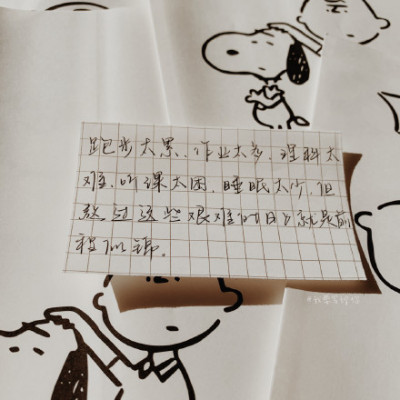 跑步太累.作业太多.理科太
难.听课太困.睡眠太少.但
熬过这些艰难的日子就是前
程似锦.